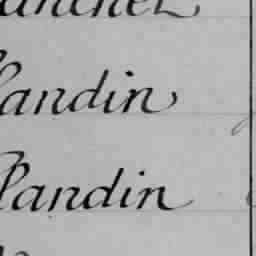 anchet
landin
Plandin